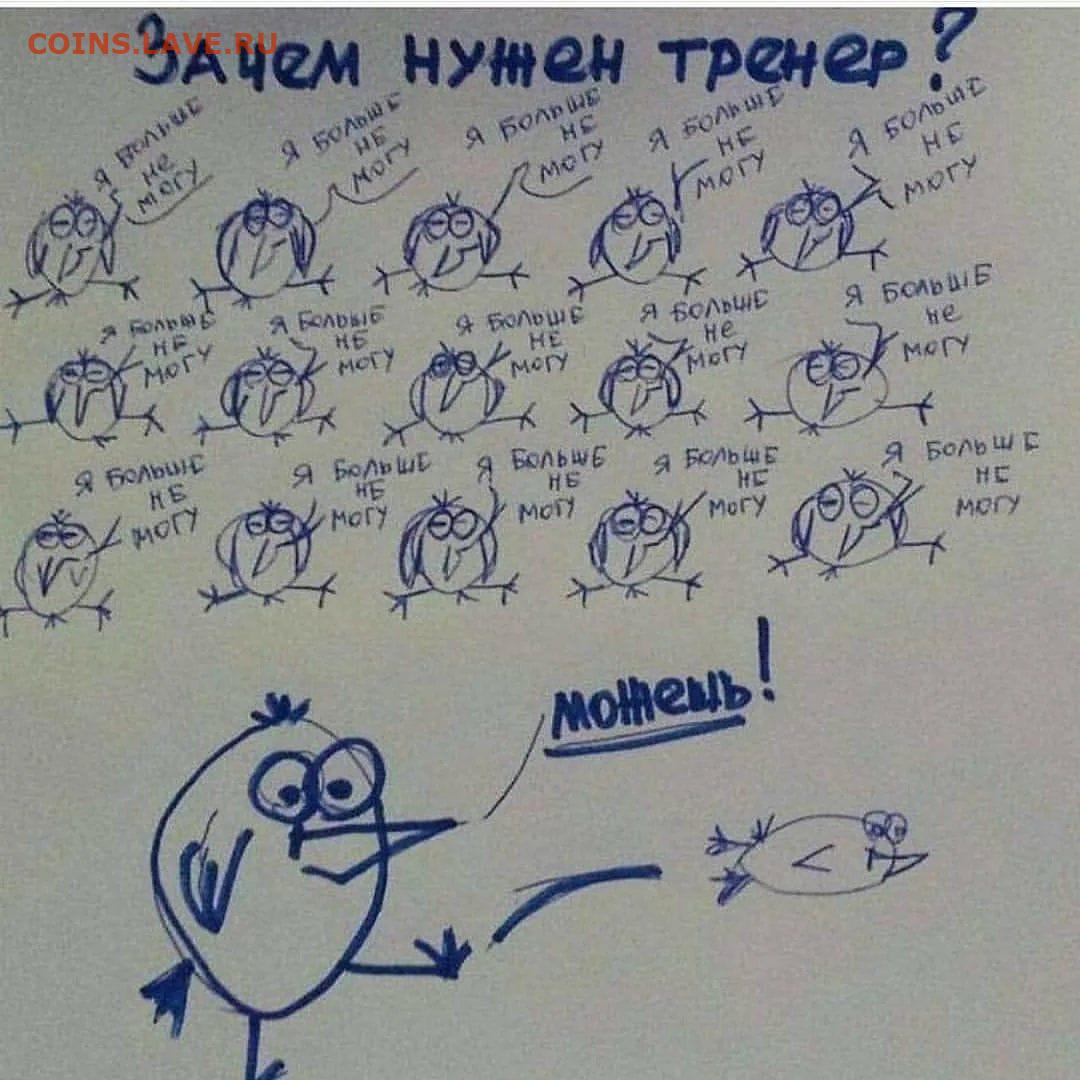 COINS.LAVE.RU
Зачем нужен тренер?
Я БОЛЬШЕ
НЕ
МОГУ
Я БОЛЬШЕ
НЕ
МОГУ
Я БОЛЬШЕ
НЕ
МОГУ
Я БОЛЬШЕ
НЕ
МОГУ
Я БОЛЬШЕ
НЕ
МОГУ
Я БОЛЬШЕ
НЕ
МОГУ
Я БОЛЬШЕ
НЕ
МОГУ
Я БОЛЬШЕ
НЕ
МОГУ
Я БОЛЬШЕ
НЕ
МОГУ
Я БОЛЬШЕ
НЕ
МОГУ
Я БОЛЬШЕ
НЕ
МОГУ
Я БОЛЬШЕ
НЕ
МОГУ
Я БОЛЬШЕ
НЕ
МОГУ
Я БОЛЬШЕ
НЕ
МОГУ
Я БОЛЬШЕ
НЕ
МОГУ
можешь!